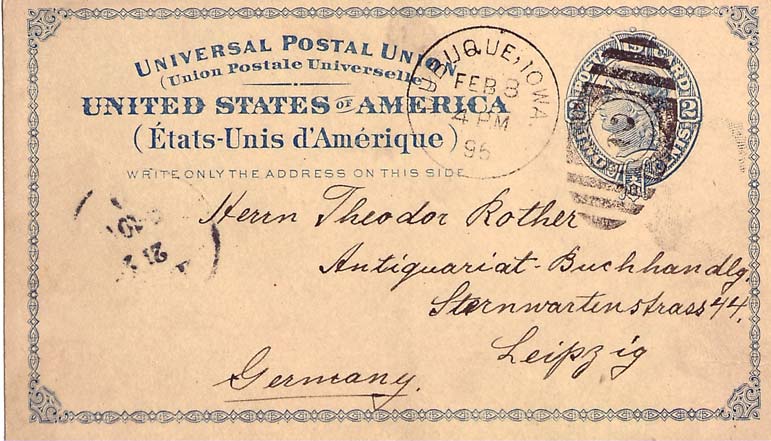 UNIVERSAL POSTAL UNION
(Union Postale Universelle)
UNITED STATES OF AMERICA
(États-Unis d'Amérique)
WRITE ONLY THE ADDRESS ON THIS SIDE
DUBUQUE, IOWA
FEB 8
4 PM
95
2
Herrn Theodor Rother
Antiquariat-Buchhandlg.
Sternwartenstrass 44.
Leipzig
Germany.